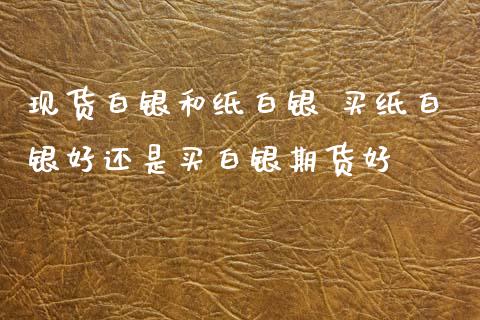 现货白银和纸白银 买纸白
银好还是买白银期货好